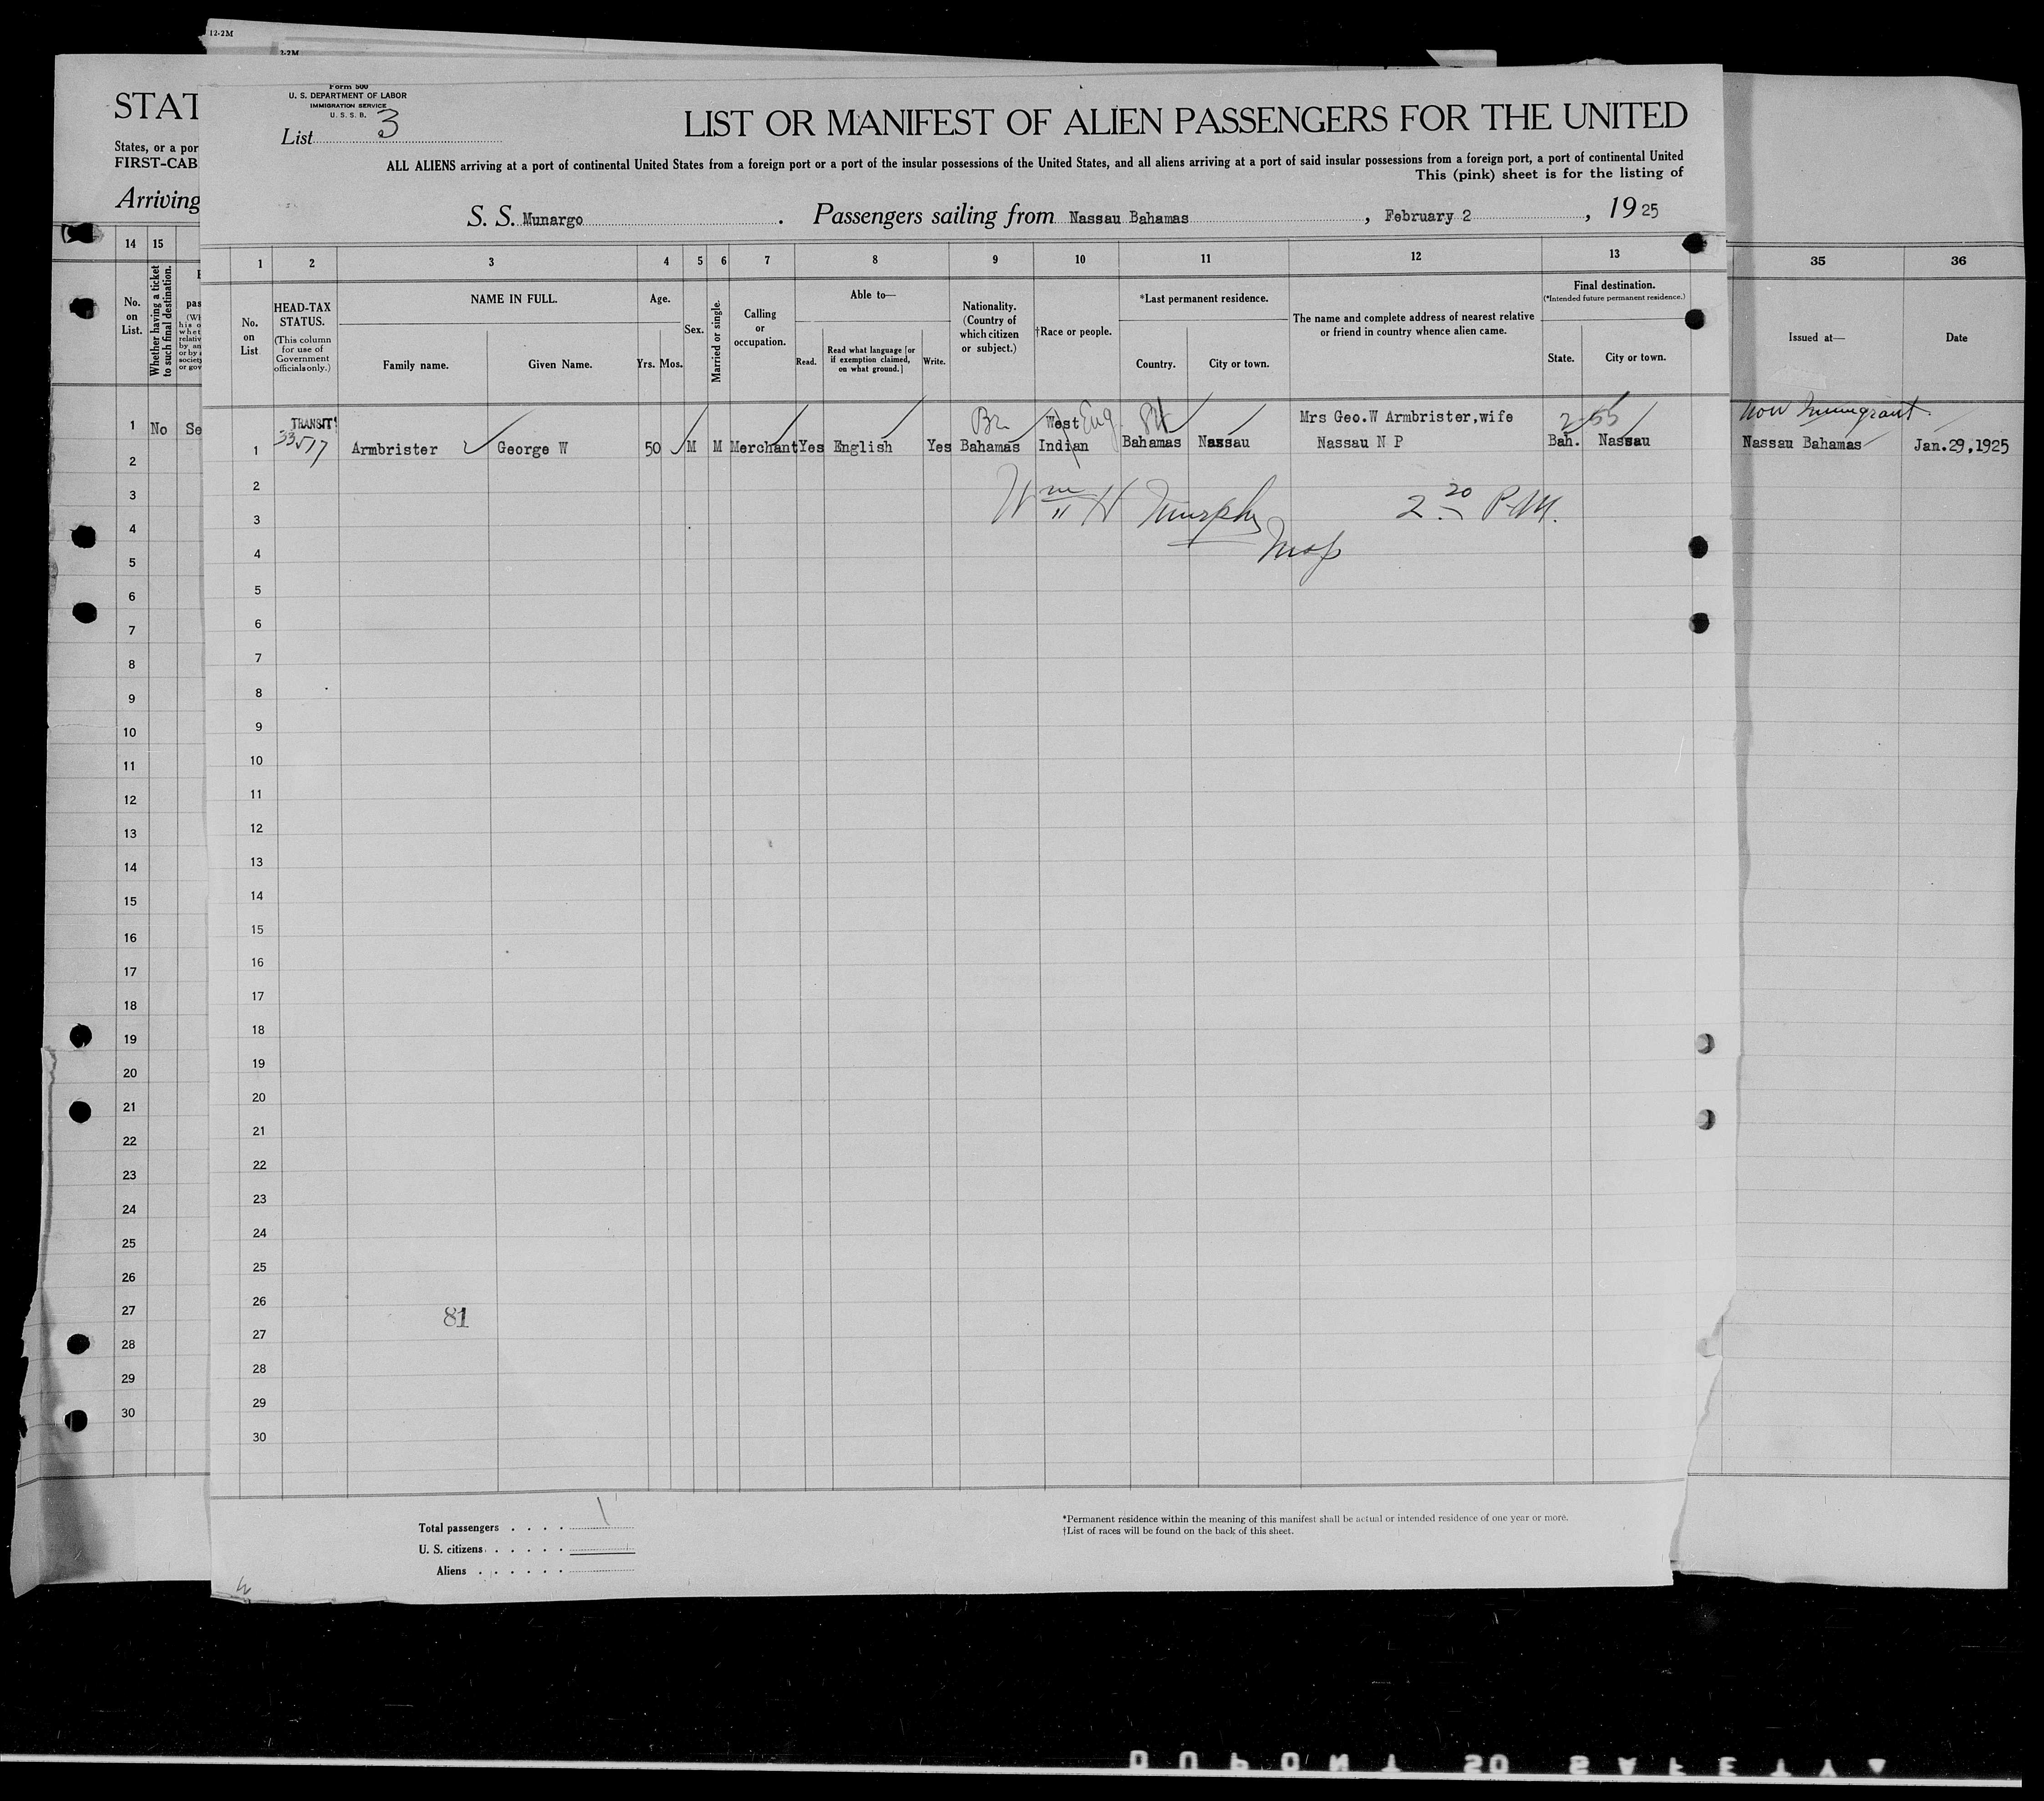 12-2M
2-2M
STAT
States, or a por
FIRST-CAB
Arriving
14 15
No. on List.
Whether having a ticket to such final destination.
1 No Se
2
3
4
5
6
7
8
9
10
11
12
13
14
15
16
17
18
19
20
21
22
23
24
25
26
27
28
29
30
Form 500
U. S. DEPARTMENT OF LABOR
IMMIGRATION SERVICE
U. S. S. B.
List 3
LIST OR MANIFEST OF ALIEN PASSENGERS FOR THE UNITED
ALL ALIENS arriving at a port of continental United States from a foreign port or a port of the insular possessions of the United States, and all aliens arriving at a port of said insular possessions from a foreign port, a port of continental United
This (pink) sheet is for the listing of
S. S. Munargo. Passengers sailing from Nassau Bahamas, February 2, 1925
1 2 3 4 5 6 7 8 9 10 11 12 13
No. on List
HEAD-TAX STATUS.
(This column for use of Government officials only.)
NAME IN FULL.
Family name. Given Name.
Age.
Yrs. Mos.
Sex.
Married or single.
Calling or occupation.
Able to—
Read. Read what language [or if exemption claimed, on what ground.] Write.
Nationality. (Country of which citizen or subject.)
†Race or people.
*Last permanent residence.
Country. City or town.
The name and complete address of nearest relative or friend in country whence alien came.
Final destination.
(*Intended future permanent residence.)
State. City or town.
TRANSIT Br West Eng Mrs Geo.W Armbrister,wife 2-55
1 33517 Armbrister George W 50 M M Merchant Yes English Yes Bahamas Indian Bahamas Nassau Nassau N P Bah. Nassau
2
3
Wm H Murphy 2 20 P.M.
4
5
6
7
8
9
10
11
12
13
14
15
16
17
18
19
20
21
22
23
24
25
26
81
27
28
29
30
Total passengers 1
U. S. citizens
Aliens
*Permanent residence within the meaning of this manifest shall be actual or intended residence of one year or more.
†List of races will be found on the back of this sheet.
35 36
Issued at— Date
Non Immigrant
Nassau Bahamas Jan.29,1925
DUPONT SO SAFETY